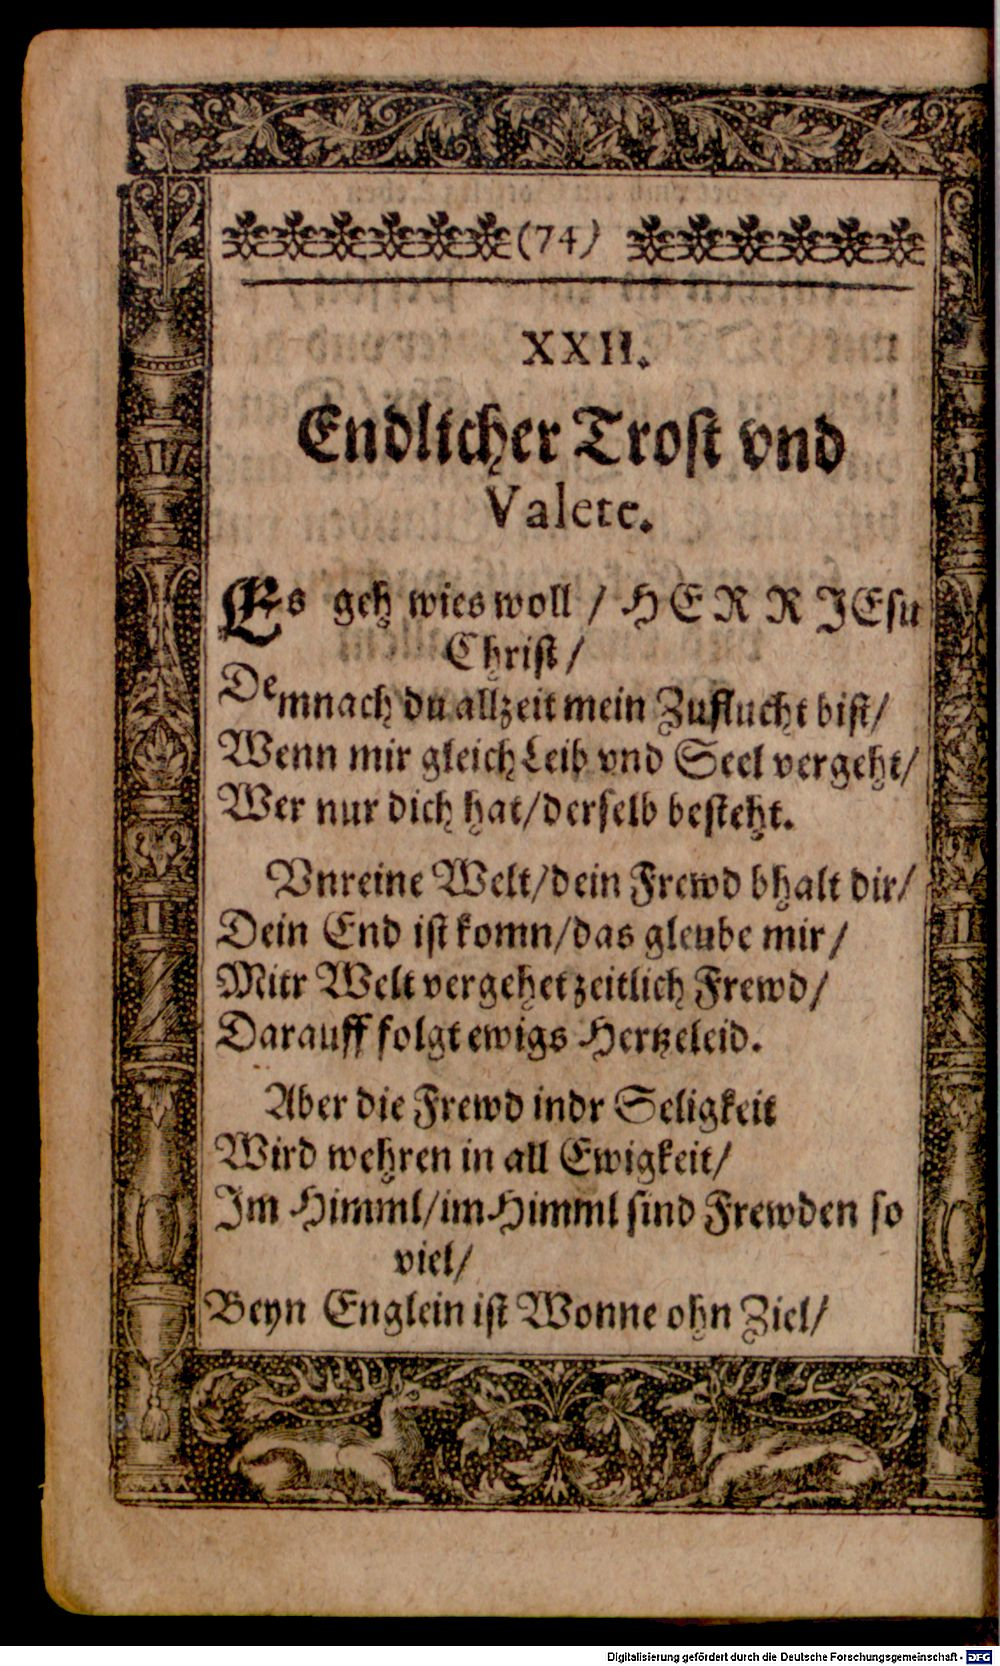 (74)
XXII.
Endlicher Trost vnd
Valete.
Es geh wies woll / HERR JEsu
Christ /
Demnach du allzeit mein Zuflucht bist /
Wenn mir gleich Leib vnd Seel vergeht /
Wer nur dich hat / derselb besteht.
Vnreine Welt / dein Frewd bhalt dir /
Dein End ist komn / das gleube mir /
Mitr Welt vergehet zeitlich Frewd /
Darauff folgt ewigs Hertzeleid.
Aber die Frewd indr Seligkeit
Wird wehren in all Ewigkeit /
Im Himml / im Himml sind Frewden so
viel /
Beyn Englein ist Wonne ohn Ziel /
Digitalisierung gefördert durch die Deutsche Forschungsgemeinschaft - DFG